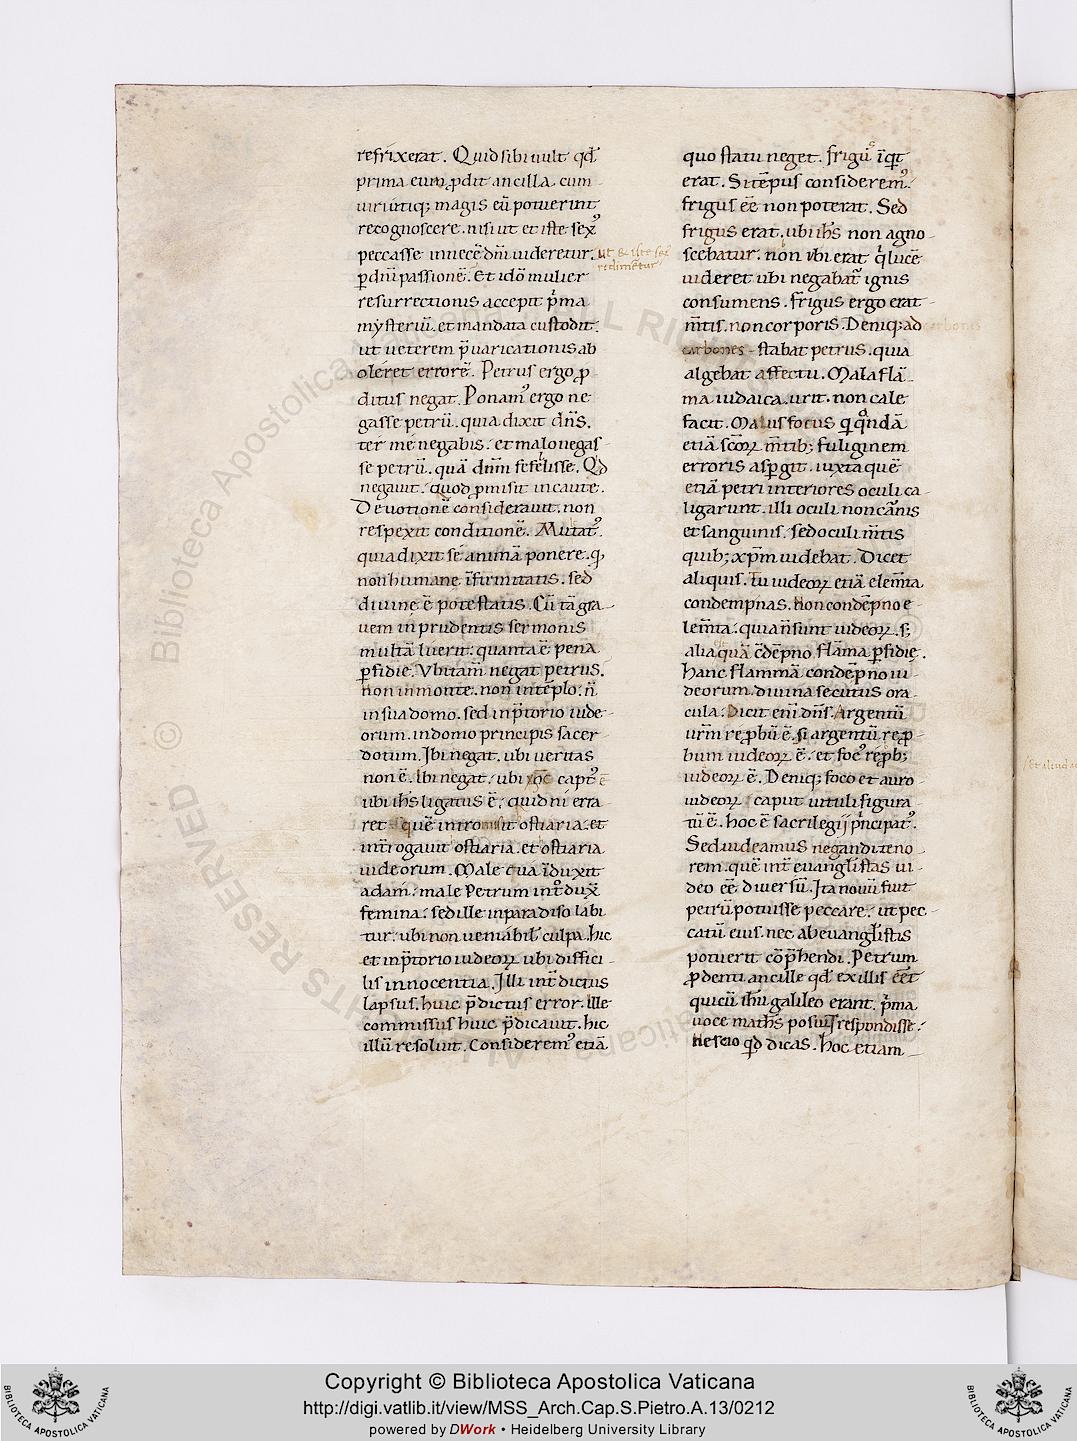 refrixerat. Quid sibi uult qđ
prima eum ꝓdit ancilla. cum
uiri utiq; magis eū potuerint
recognoscere. nisi ut et iste sex᷒
peccasse in nece dn̄i uideretur.
ut & iste sex᷒
redimeretur
ꝑ dn̄i passionē. Et idō mulier
resurrectionis accepit p̓ma
mysteriū. et mandata custodit.
ut ueterem p̄uaricationis ab
oleret errorē. Petrus ergo ꝓ
ditus negat. Ponam᷒ ergo ne
gasse petrū. quia dixit dn̄s.
ter me negabis. et malo negas
se petrū. quā dn̄m fefelisse. Qđ
negauit. quod ꝓmisit incaute.
Deuotionē considerauit. non
respexit conditionē. Mutat᷒.
quia dixit se animā ponere. q̨
non humane īfirmitatis. sed
diuine ē potestatis. Cū tā gra
uem inprudentis sermonis
multā luerit. quanta ē pena
ꝑfidie. Vbi tam̄ negat petrus.
Non in monte. non in tēplo. n̄
in sua domo. sed in p̄torio iude
orum. in domo principis sacer
dotum. Ibi negat. ubi ueritas
non ē. Ibi negat. ubi xp̄c capt᷒ ē
ubi ih̄s ligatus ē. quid ni erra
ret quē intromisit ostiaria. et
int̄rogauit ostiaria. et ostiaria
iudeorum. Male eua īduxit
adam. male Petrum int᷒dux̄
femina. sed ille in paradiso labi
tur. ubi non ueniabil̓ culpa. hic
et in p̄torio iudeoꝝ ubi diffici
lis innocentia. Illi int̄dictus
lapsus. huic p̄dictus error. ille
commissus huic p̄dicauit. hic
illū resoluit. Considerem᷒ etiā
quo statu neget. frigu᷒ īqit
erat. Si tēpus considerem᷒.
frigus eē non poterat. Sed
frigus erat. ubi ih̄s non agno
scebatur. non ibi erat q̓ lucē
uideret ubi negabat᷒ ignis
consumens. frigus ergo erat
m̄tis. non corporis. Deniq; ad
carbones
carbones stabat petrus. quia
algebat affectu. Mala flā
ma iudaica. urit. non cale
facit. Malus focus qui q̓ndā
etiā sc̄oꝝ m̄tib; fuliginem
erroris aspgit. iuxta quē
etiā petri interiores oculi ca
ligarunt. illi oculi non carnis
et sanguinis. sed oculi m̄tis
quib; xp̄m uidebat. Dicet
aliquis. tu iudeoꝝ etiā elem̄ta
condempnas. Non condēpno e
lem̄ta. quia n̄ sunt iudeoꝝ. s;
alia quā c̄dēpno flāma ꝑfidię.
Hanc flammā condēpno iu
deorum. diuina secutus ora
cula. Dicit eni dn̄s. Argentū
ur̄m reꝓbū ē. si argentū reꝓ
bum iudeoꝝ ē. et foc᷒ reꝓb;
iudeoꝝ ē. Deniq; foco et auro
iudeoꝝ. caput uituli figura
tū ē. hoc ē sacrilegii p̓ncipat᷒.
Sed uideamus negandi teno
rem. quē int̄ euangl̓istas ui
deo eē diuersū. Ita nouū fuit
petrū potuisse peccare. ut pec
catū eius nec ab euangl̓istis
potuerit cōp̄hendi. Petrum
ꝓdenti ancille qđ ex illis eēt
qui cū ih̄u galileo erant. p̓ma
uoce math̄s posuit respondisse.
Nescio qđ dicas. hoc etiam
Copyright © Biblioteca Apostolica Vaticana
http://digi.vatlib.it/view/MSS_Arch.Cap.S.Pietro.A.13/0212
powered by DWork • Heidelberg University Library